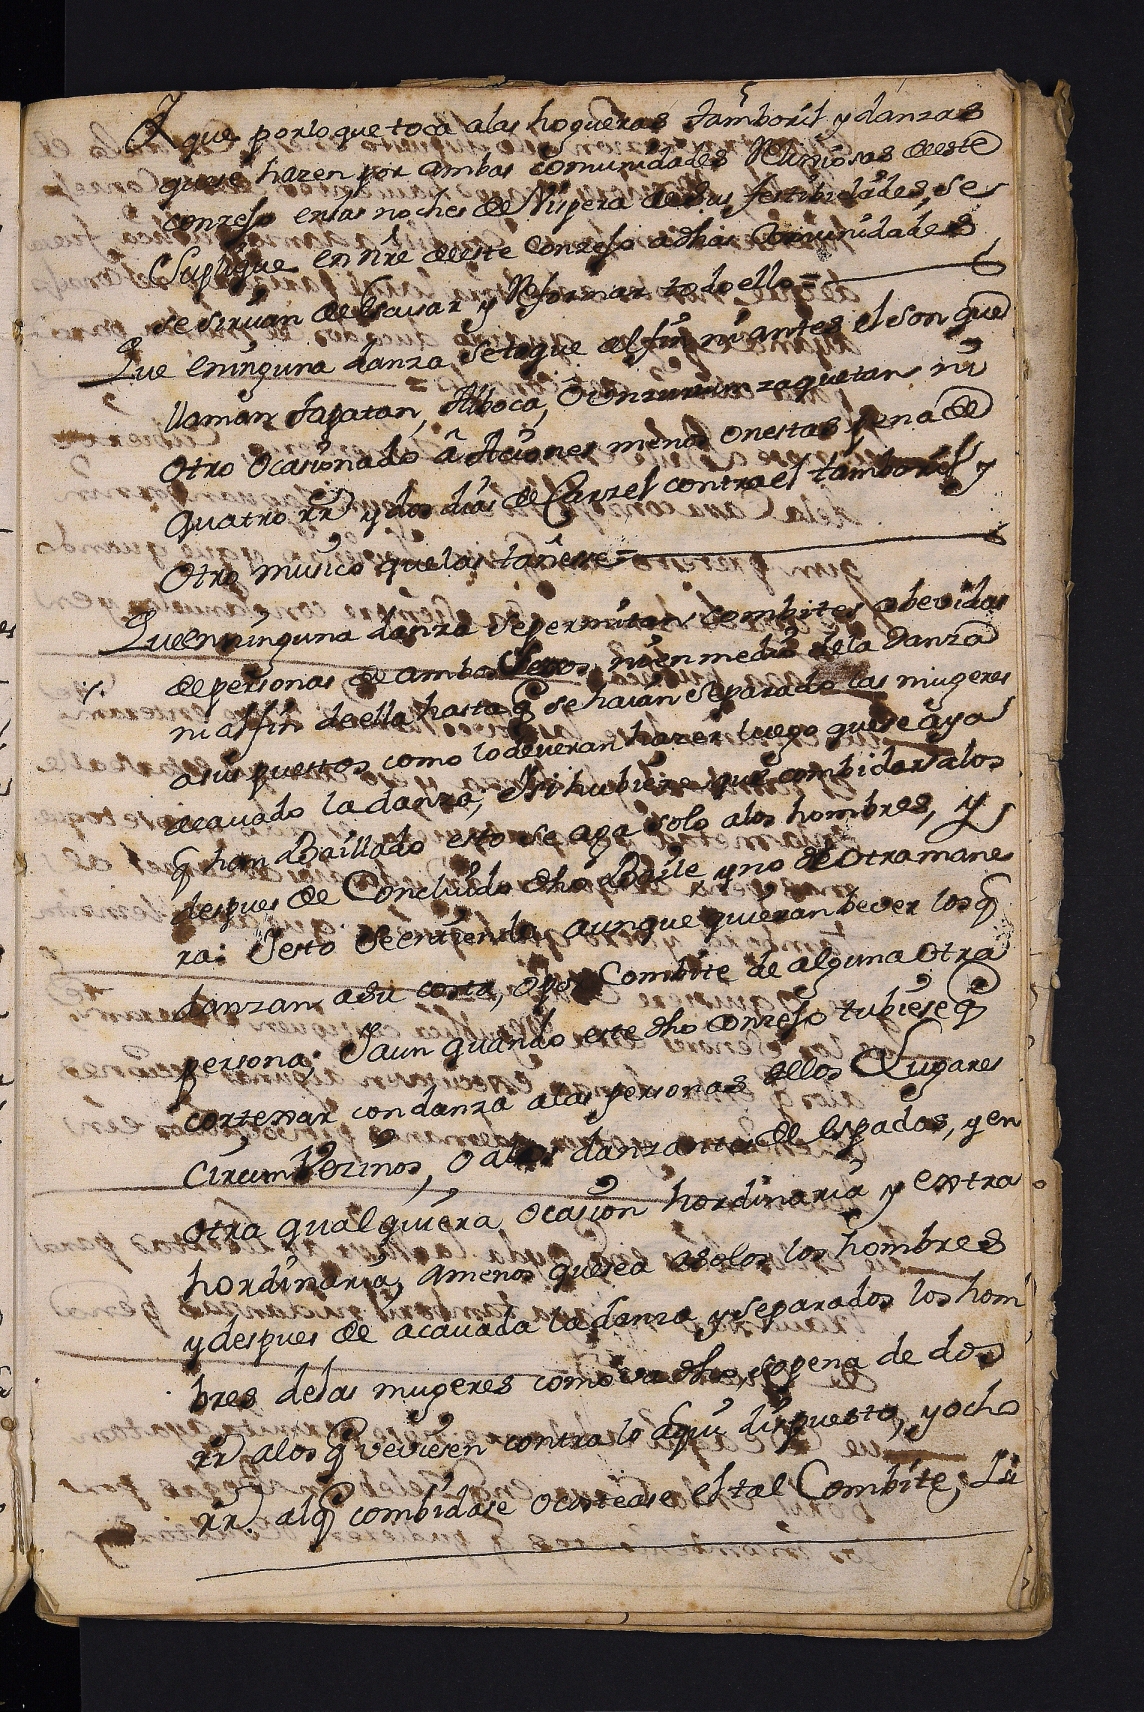 Y que porlo que toca alas hogueras tamboril y danzas
quese hazen por ambas comunidades Religiosas de este
conzejo enlas noches de Vispera desus festibidades, se
Suplique en nre de este Conzejo adhas Comunidades
se siruan de escusar y Reformar todo ello =
Que eninguna danza setoque al fin ni antes el son que
llaman tapatan, Alboca, O zaquetan ni
otro ocasionado â Aciones menos onestas pena de
quatro rr.s y dos dias de Carzel contra el tamboril y
Otro musico quelas tañesse =
Queenninguna danza sepermitan combites abevidas
de personas de ambos Sexos, nienmedio dela Danza
ni alfin deella hasta q̃ se haian separado las mugeres
asus puestos como lo deveran hazer luego quese aya
acavado la danza, Y si hubiere que combidar alos
q̃ han Baillado esto se aga solo alos hombres, y
despues de Concluido dho Baile y no de Otra mane
ra: Yesto Seentienda aunque quieran bever los q̃
danzan asu costa, o por Combite de alguna Otra
persona; Yaun quando este dho conzejo tubiese q̃
cortexar con danza alas personas dellos Lugares
CircumVezinos, o alos danzantes de Espadas, y en
otra qualquiera ocasion hordinaria y extra
hordinaria, amenos quesea asolos los hombres
y despues de acauada la danza y separados los hom
bres delas mugeres como va dho, sopena de dos
rr.s alos q̃ veviesen contra lo aqui dispuesto, y ocho
rr.s al q̃ combidase o costease el tal Combite, Y si